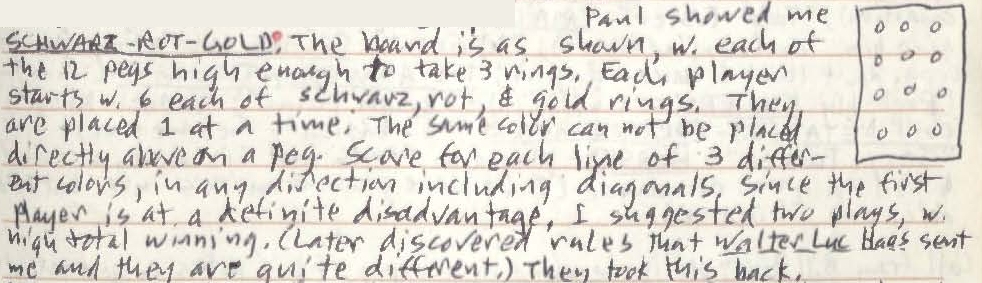 Paul showed me
SCHWARZ-ROT-GOLD. The board is as shown, w. each of
the 12 pegs high enough to take 3 rings. Each player
starts w. 6 each of schwarz, rot, & gold rings. They
are placed 1 at a time. The same color can not be placed
directly above on a peg. Score for each line of 3 differ-
ent colors, in any direction including diagonals. Since the first
player is at a definite disadvantage, I suggested two plays, w.
high total winning. (Later discovered rules that Walter Luc Haas sent
me and they are quite different.) They took this back.